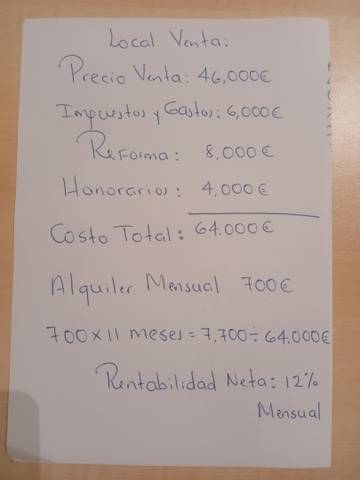 Local Venta:
Precio Venta: 46,000€
Impuestos y Gastos: 6,000€
Reforma: 8,000€
Honorarios: 4,000€
Costo Total: 64.000€
Alquiler Mensual 700€
700 x 11 meses = 7,700 ÷ 64.000€
Rentabilidad Neta: 12%
Mensual